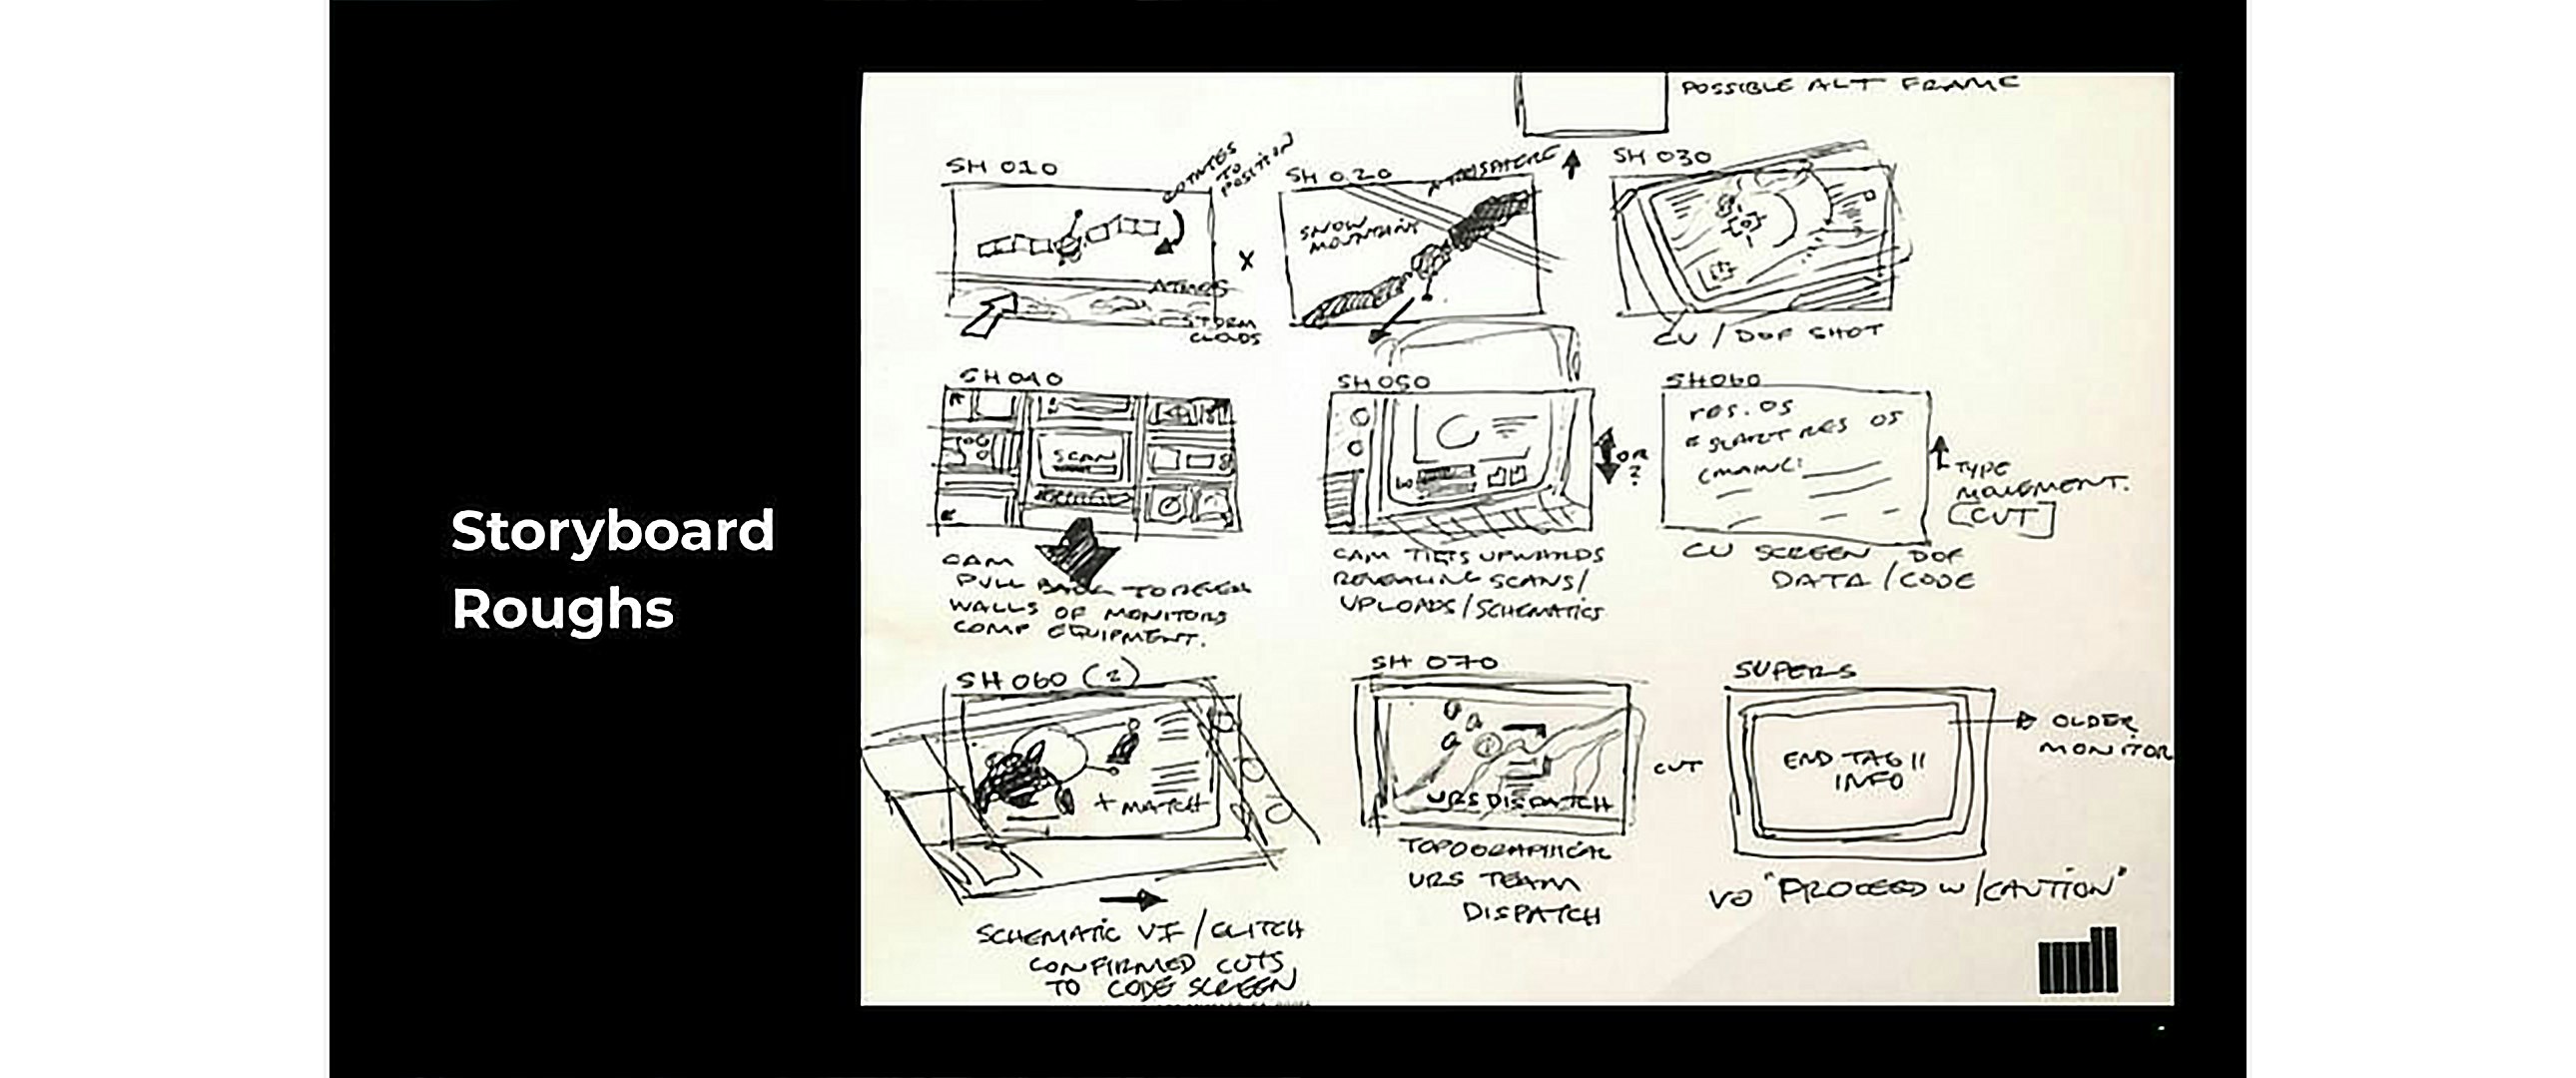 Storyboard
Roughs
POSSIBLE ALT FRAME
SH 010
ROTATES
TO
POSITION
ATMOS
STORM
CLOUDS
X
SH 020
ATMOSPHERE
SNOW
MOUNTAINS
SH 030
CU / DOF SHOT
SH 040
SCAN
CAM
PULL BACK TO REVEAL
WALLS OF MONITORS
COMP EQUIPMENT.
SH 050
OR
?
CAM TILTS UPWARDS
REVEALING SCANS/
UPLOADS/SCHEMATICS
SH060
res. OS
START RES OS
(MAINC:
TYPE
MOVEMENT.
[CUT]
CU SCREEN DOF
DATA / CODE
SH 060 (2)
+ MATCH
SCHEMATIC VF / GLITCH
CONFIRMED CUTS
TO CODE SCREEN
SH 070
URS DISPATCH
CUT
TOPOGRAPHICAL
URS TEAM
DISPATCH
SUPERS
END TAG II
INFO
OLDER
MONITOR
VO "PROCEED W/CAUTION"